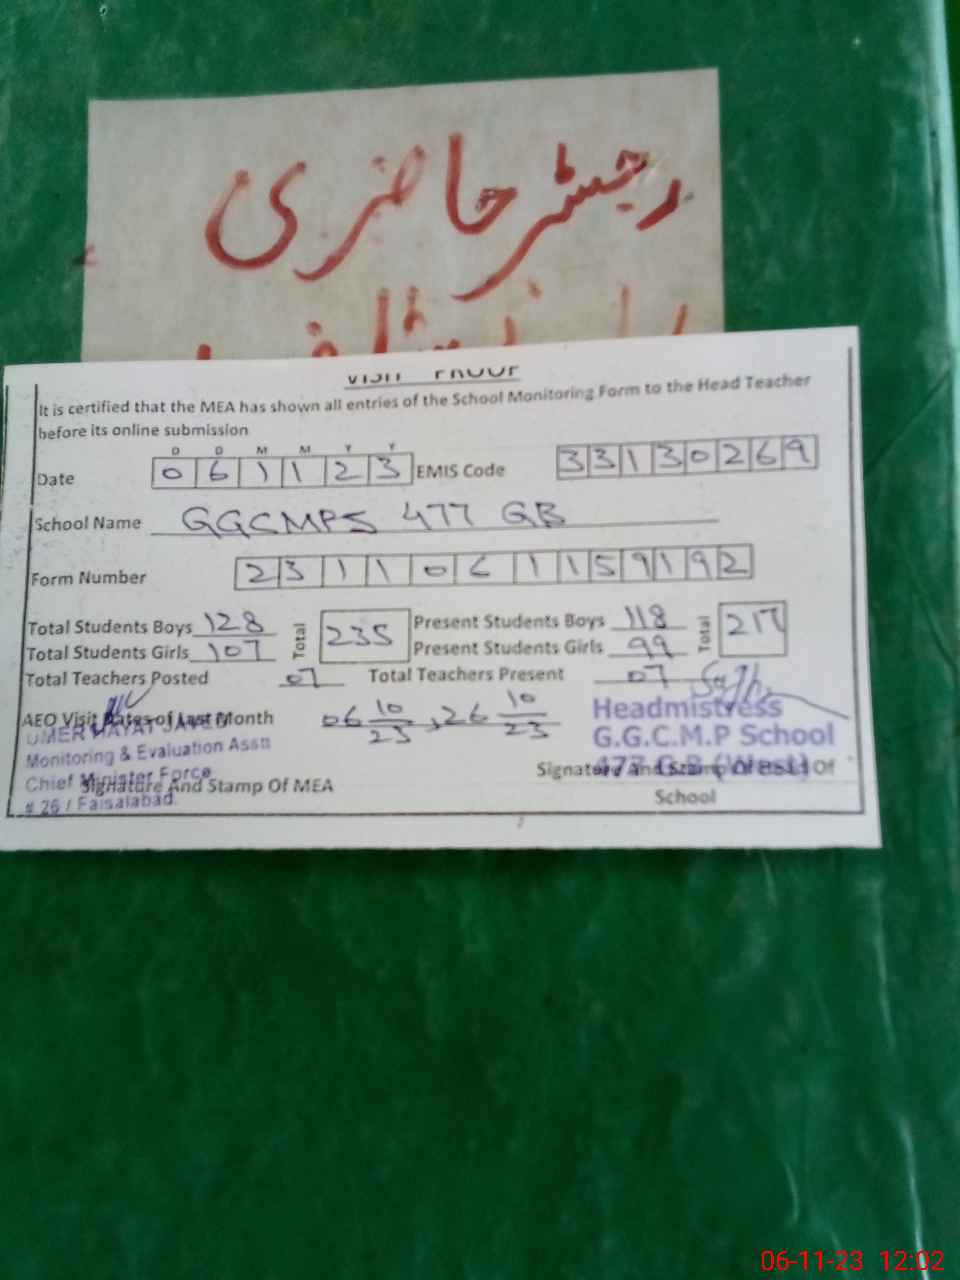 رجسٹر حاضری
VISIT PROOF
It is certified that the MEA has shown all entries of the School Monitoring Form to the Head Teacher
before its online submission
D D M M Y Y
Date 0 6 1 1 2 3 EMIS Code 3 3 1 3 0 2 6 9
School Name GGCMPS 477 GB
Form Number 2 3 1 1 0 6 1 1 5 9 1 9 2
Total Students Boys 128 Total 235 Present Students Boys 118 Total 217
Total Students Girls 107 Present Students Girls 99
Total Teachers Posted 07 Total Teachers Present 07
AEO Visit Dates of Last Month 06 10/23, 26 10/23
UMER HAYAT JAVED
Monitoring & Evaluation Asstt
Chief Minister Force
# 26 / Faisalabad.
Signature And Stamp Of MEA
Headmistress
G.G.C.M.P School
477 G.B (West)
Signature And Stamp Of Of
School
06-11-23 12:02